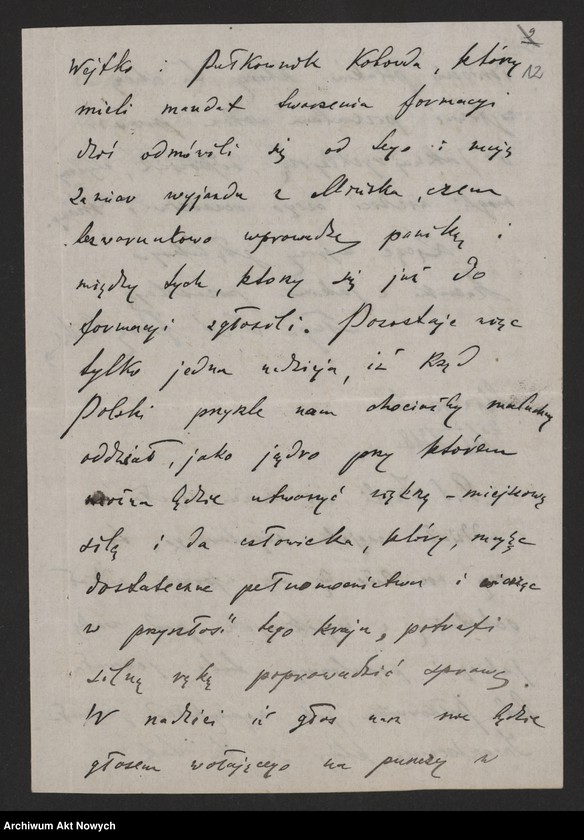 2
12
Wejtko i Pułkownik Kobordo, którzy
mieli mandat tworzenia formacyi
dziś odmówili się od tego i mają
zamiar wyjazdu z Mińska, czem
bezwarunkowo wprowadzą panikę i
między tych, którzy się już do
formacyi zgłosili. Pozostaje więc
tylko jedna nadzieja, iż Rząd
Polski przyśle nam chociażby malutki
oddział, jako jądro przy którem
można będzie utworzyć większą - miejscową
siłę i da człowieka, który, mając
dostateczne pełnomocnictwa i wierząc
w przyszłość tego kraju, potrafi
silną ręką poprowadzić sprawę.
W nadziei iż głos nasz nie będzie
głosem wołającego na puszczy w
Archiwum Akt Nowych